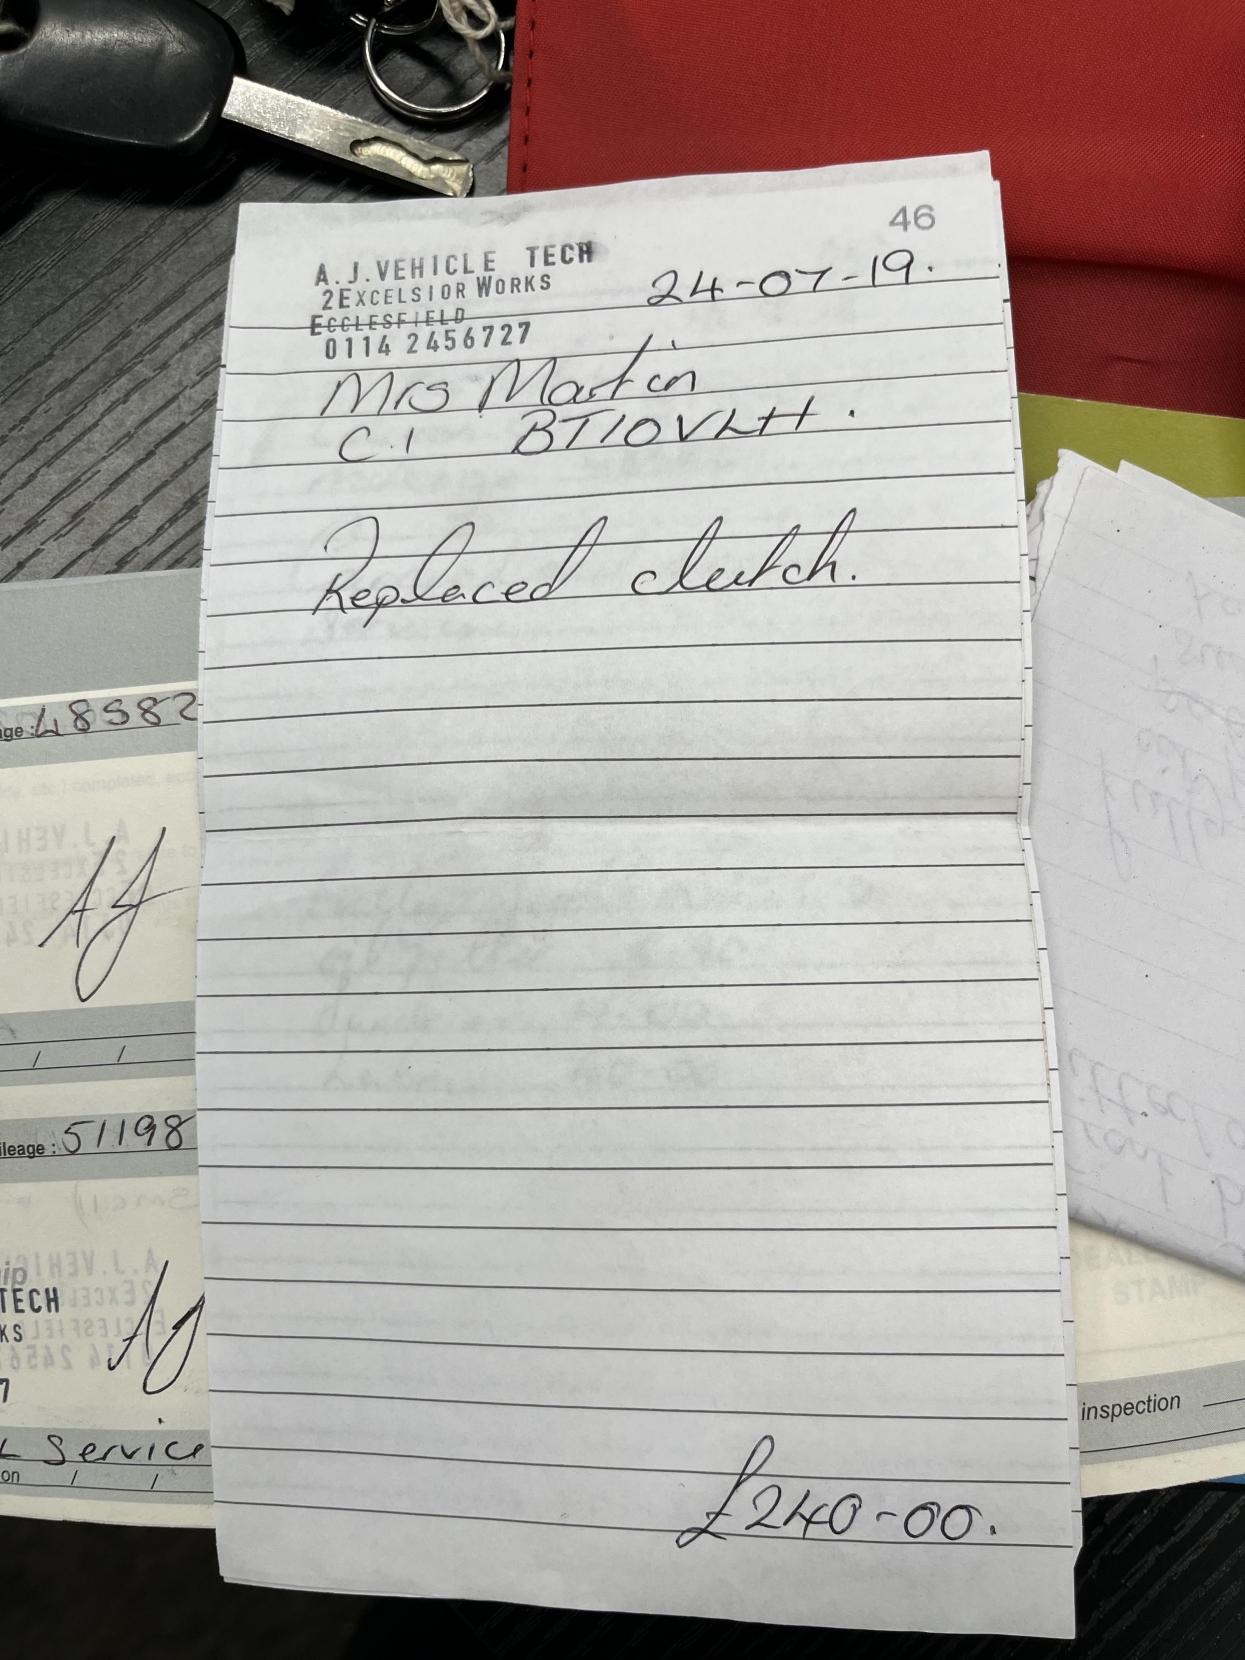 46
A.J.VEHICLE TECH
2EXCELSIOR WORKS
ECCLESFIELD
0114 2456727
24-07-19.
Mrs Martin
C.1 BT10VLH.
Replaced clutch.
£240-00.
48582
51198
ileage :
AJ
TECH
KS
7
AJ
Service
on / /
inspection
STAMP